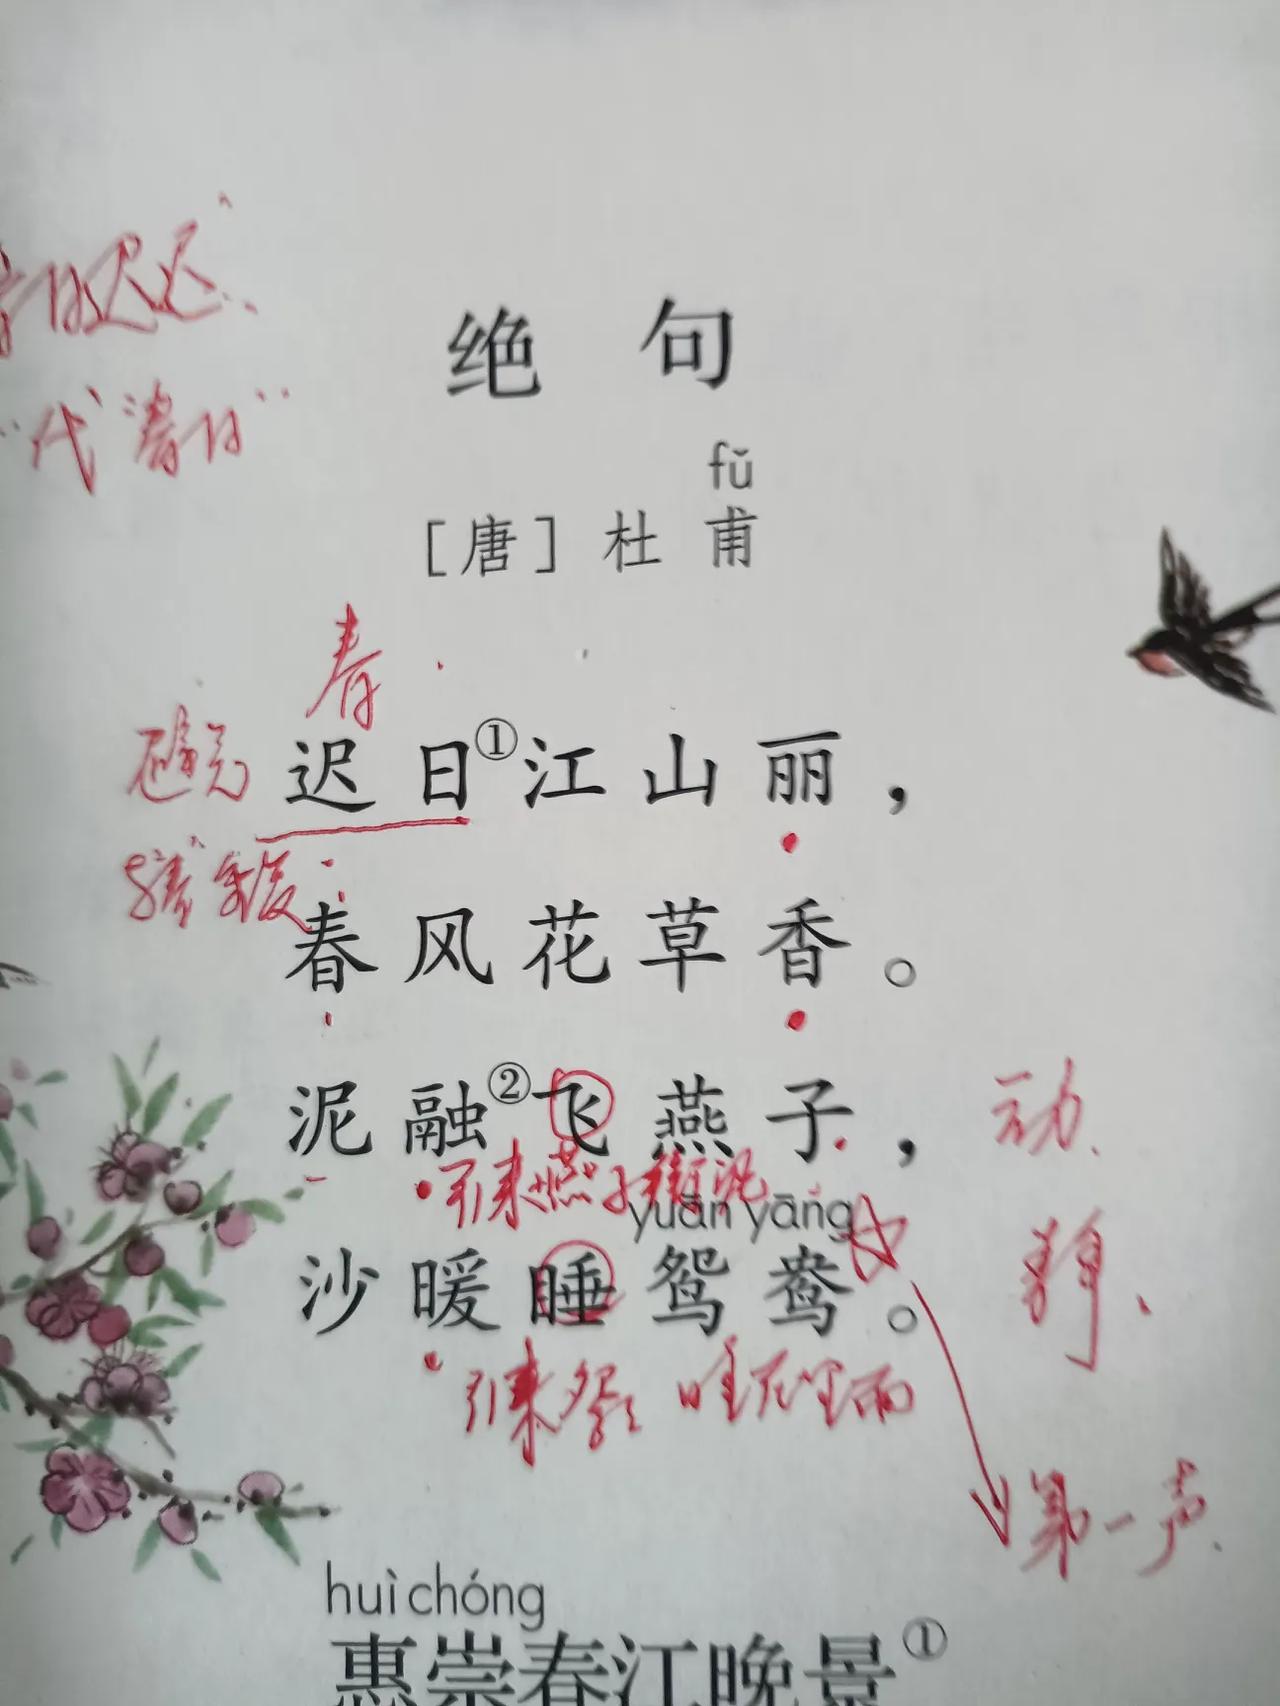 春日迟迟
代"春日"
绝句
fǔ
[唐]杜甫
春
迟日①江山丽，
春风花草香。
泥融②飞燕子，
动
引来燕子衔泥
yuān yāng
沙暖睡鸳鸯。
静
引来鸳
第一声
huì chóng
惠崇春江晚景①